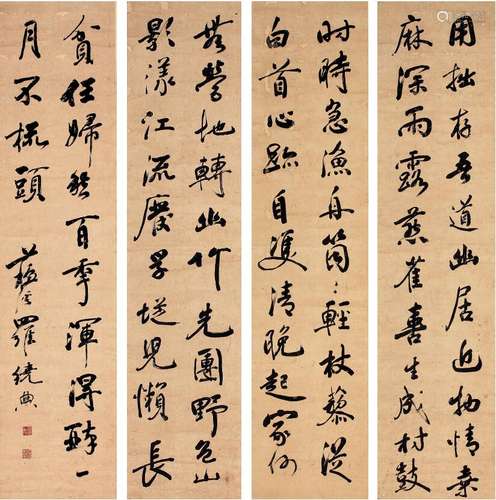 用拙存吾道幽居近物情桑
麻深雨露燕雀喜生成村鼓
时時急漁舟箇〻輕杖藜從
白首心跡自雙清晚起家何
無營地轉幽竹光團野色山
影漾江流廢學從兒懶長
貧任婦愁百年渾得醉一
月不梳頭
蘇溪羅繞典